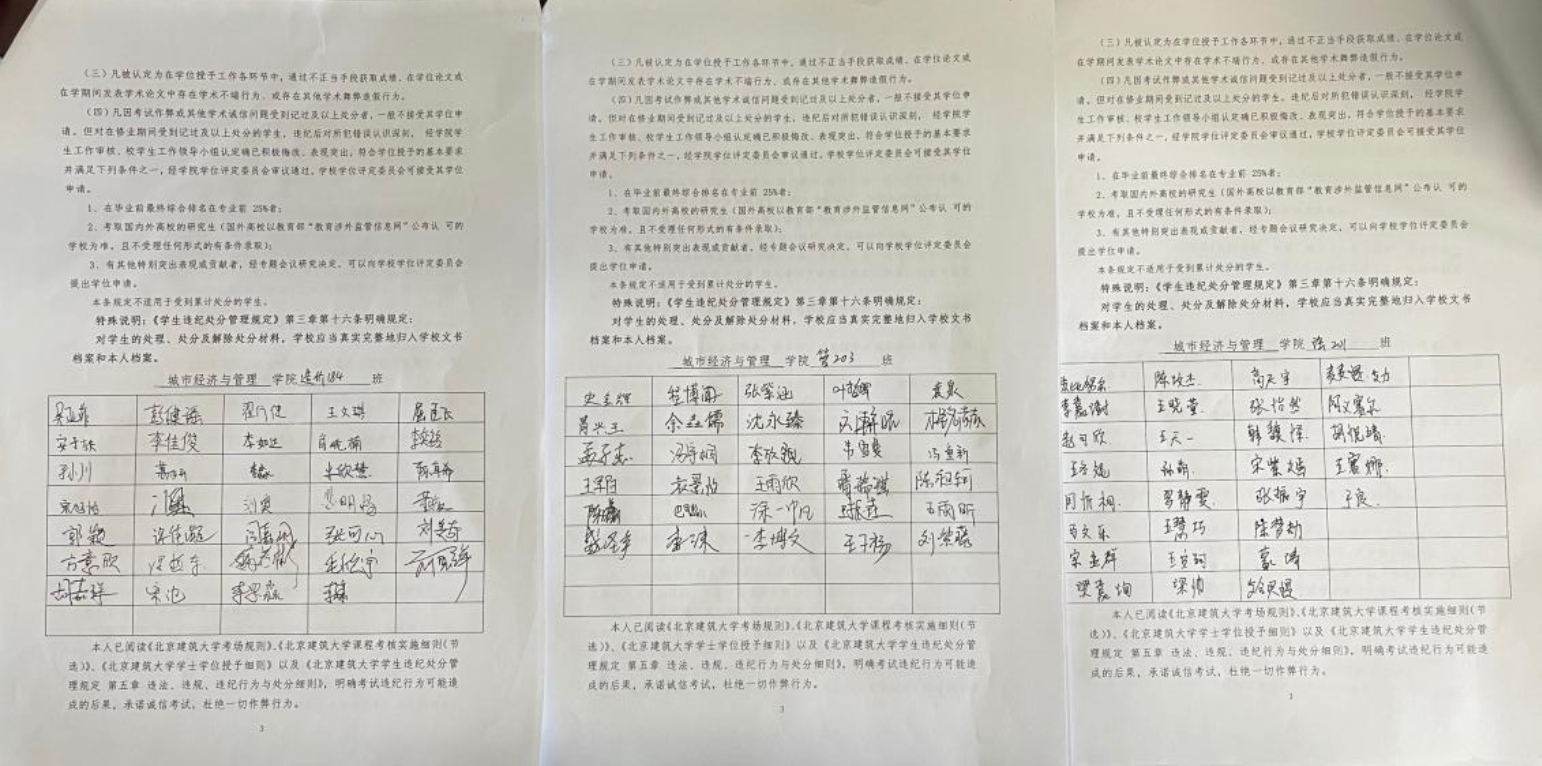 （三）凡被认定为在学位授予工作各环节中，通过不正当手段获取成绩、在学位论文或
在学期间发表学术论文中存在学术不端行为、或存在其他学术舞弊造假行为。
（四）凡因考试作弊或其他学术诚信问题受到记过及以上处分者，一般不接受其学位申
请。但对在修业期间受到记过及以上处分的学生，违纪后对所犯错误认识深刻， 经学院学
生工作审核、校学生工作领导小组认定确已积极悔改、表现突出，符合学位授予的基本要求
并满足下列条件之一，经学院学位评定委员会审议通过，学校学位评定委员会可接受其学位
申请。
1、在毕业前最终综合排名在专业前 25%者；
2、考取国内外高校的研究生（国外高校以教育部“教育涉外监管信息网”公布认 可的
学校为准，且不受理任何形式的有条件录取）；
3、有其他特别突出表现或贡献者，经专题会议研究决定，可以向学校学位评定委员会
提出学位申请。
本条规定不适用于受到累计处分的学生。
特殊说明：《学生违纪处分管理规定》第三章第十六条明确规定：
对学生的处理、处分及解除处分材料，学校应当真实完整地归入学校文书
档案和本人档案。
城市经济与管理 学院 造价184 班
彭健谣 翟行健 王文琪
安子轶 李佳俊 李如正
孙川
郭颖 张可心 刘美奇
方嘉欣
胡嘉祥 宋沱 李梁淼
本人已阅读《北京建筑大学考场规则》、《北京建筑大学课程考核实施细则（节
选）》、《北京建筑大学学士学位授予细则》以及《北京建筑大学学生违纪处分管
理规定 第五章 违法、违规、违纪行为与处分细则》，明确考试违纪行为可能造
成的后果，承诺诚信考试，杜绝一切作弊行为。
3
（三）凡被认定为在学位授予工作各环节中，通过不正当手段获取成绩、在学位论文或
在学期间发表学术论文中存在学术不端行为、或存在其他学术舞弊造假行为。
（四）凡因考试作弊或其他学术诚信问题受到记过及以上处分者，一般不接受其学位申
请。但对在修业期间受到记过及以上处分的学生，违纪后对所犯错误认识深刻， 经学院学
生工作审核、校学生工作领导小组认定确已积极悔改、表现突出，符合学位授予的基本要求
并满足下列条件之一，经学院学位评定委员会审议通过，学校学位评定委员会可接受其学位
申请。
1、在毕业前最终综合排名在专业前 25%者；
2、考取国内外高校的研究生（国外高校以教育部“教育涉外监管信息网”公布认 可的
学校为准，且不受理任何形式的有条件录取）；
3、有其他特别突出表现或贡献者，经专题会议研究决定，可以向学校学位评定委员会
提出学位申请。
本条规定不适用于受到累计处分的学生。
特殊说明：《学生违纪处分管理规定》第三章第十六条明确规定：
对学生的处理、处分及解除处分材料，学校应当真实完整地归入学校文书
档案和本人档案。
城市经济与管理 学院 管203 班
张紫涵 袁泉
肖兴玉 余垚儒 沈永臻
孟子杰 冯宇桐 李欣凯
王雨欣 陈昶轲
涂一中 王雨昕
李博文 王子杨 刘紫藤
本人已阅读《北京建筑大学考场规则》、《北京建筑大学课程考核实施细则（节
选）》、《北京建筑大学学士学位授予细则》以及《北京建筑大学学生违纪处分管
理规定 第五章 违法、违规、违纪行为与处分细则》，明确考试违纪行为可能造
成的后果，承诺诚信考试，杜绝一切作弊行为。
3
（三）凡被认定为在学位授予工作各环节中，通过不正当手段获取成绩、在学位论文或
在学期间发表学术论文中存在学术不端行为、或存在其他学术舞弊造假行为。
（四）凡因考试作弊或其他学术诚信问题受到记过及以上处分者，一般不接受其学位申
请。但对在修业期间受到记过及以上处分的学生，违纪后对所犯错误认识深刻， 经学院学
生工作审核、校学生工作领导小组认定确已积极悔改、表现突出，符合学位授予的基本要求
并满足下列条件之一，经学院学位评定委员会审议通过，学校学位评定委员会可接受其学位
申请。
1、在毕业前最终综合排名在专业前 25%者；
2、考取国内外高校的研究生（国外高校以教育部“教育涉外监管信息网”公布认 可的
学校为准，且不受理任何形式的有条件录取）；
3、有其他特别突出表现或贡献者，经专题会议研究决定，可以向学校学位评定委员会
提出学位申请。
本条规定不适用于受到累计处分的学生。
特殊说明：《学生违纪处分管理规定》第三章第十六条明确规定：
对学生的处理、处分及解除处分材料，学校应当真实完整地归入学校文书
档案和本人档案。
城市经济与管理 学院 法201 班
高天宇
王晓莹 张怡然
赵可欣 王天一 韩馥怿
孙萌 宋紫嫣 王震娜
罗静雯 张振宇 于良
陈梦圻
宋孟群
本人已阅读《北京建筑大学考场规则》、《北京建筑大学课程考核实施细则（节
选）》、《北京建筑大学学士学位授予细则》以及《北京建筑大学学生违纪处分管
理规定 第五章 违法、违规、违纪行为与处分细则》，明确考试违纪行为可能造
成的后果，承诺诚信考试，杜绝一切作弊行为。
3